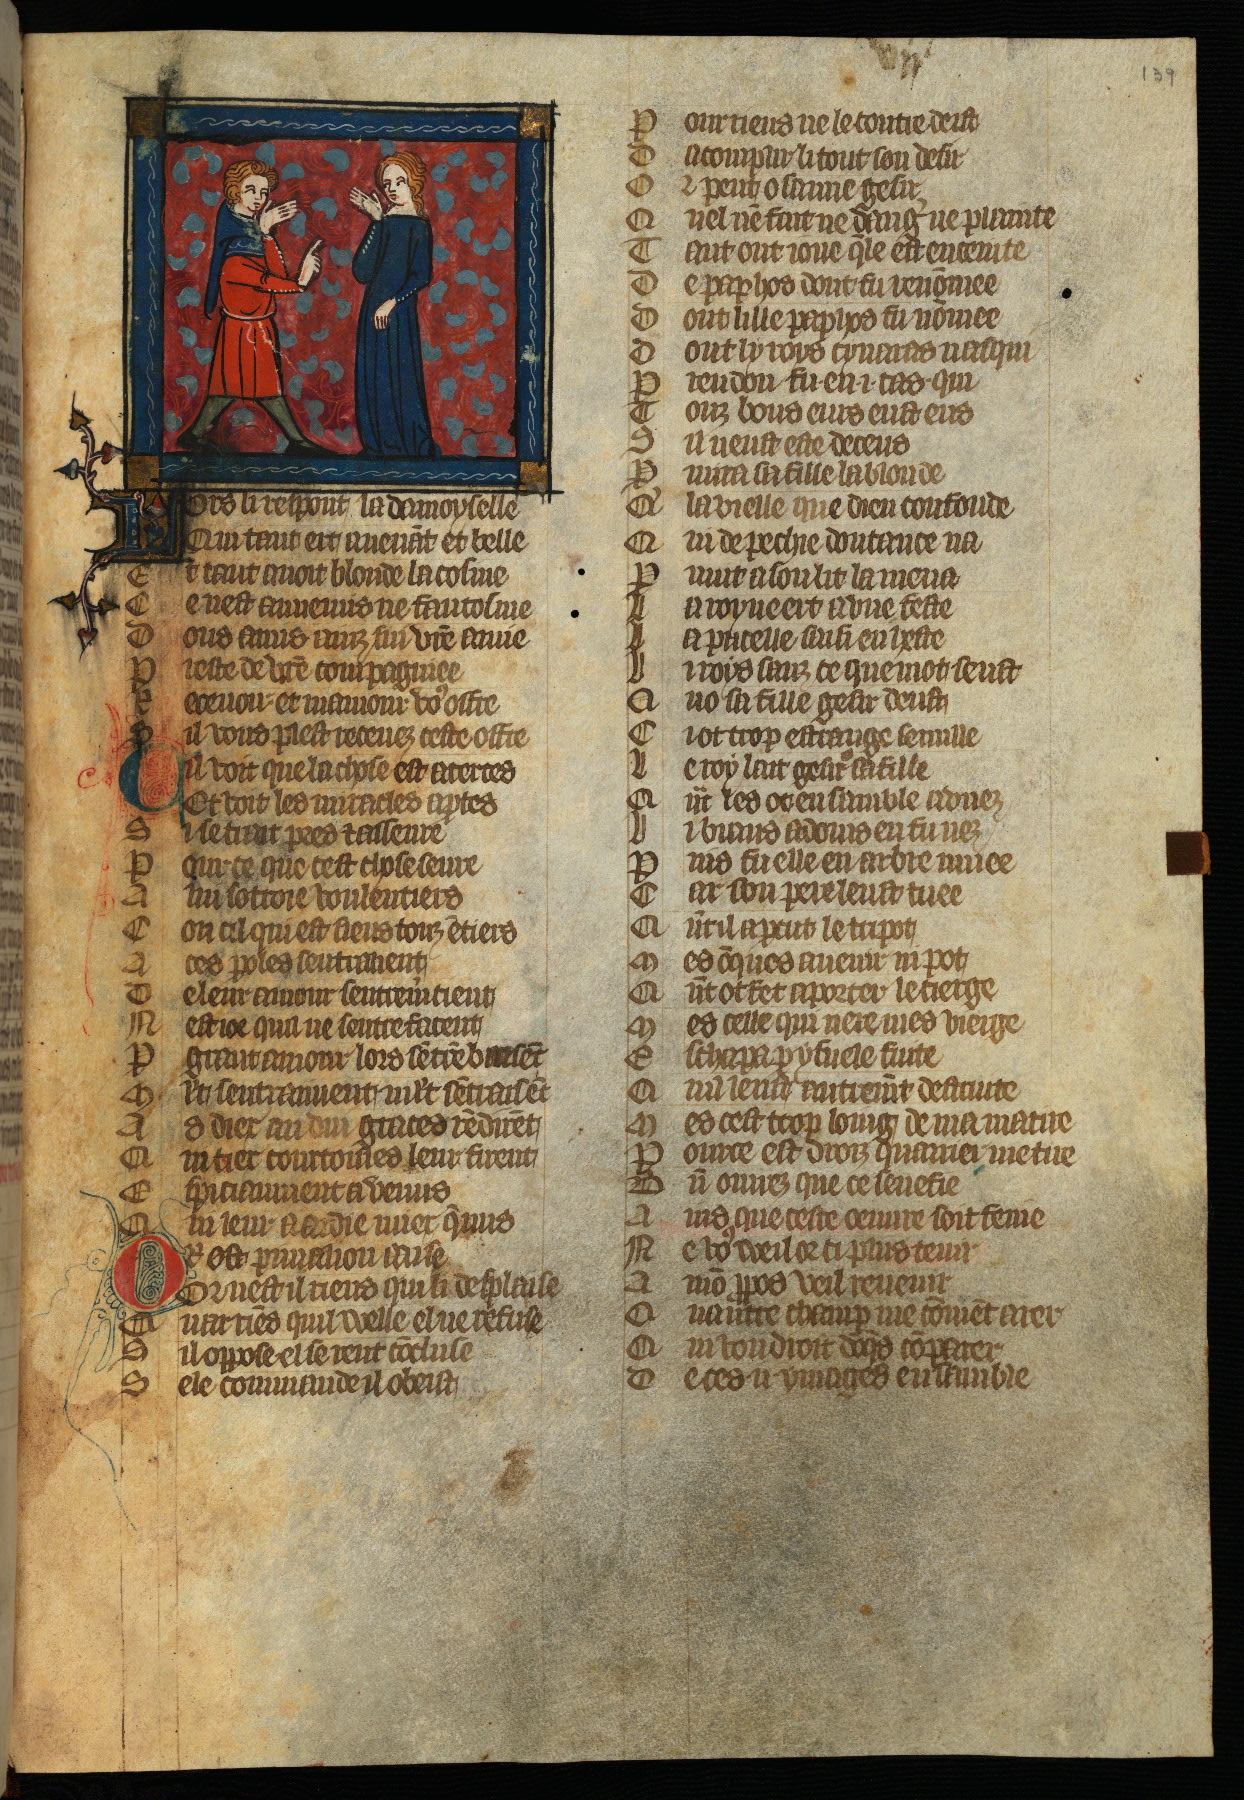 139
Lors li respont la damoyselle
Qui tant ert auenāt et belle
Et tant auoit blonde la cosme
Ce nest anemis ne fantosme
Dous amis ainz sui vr̄e amie
Preste de vr̄e compaigniee
Receuoir et mamour vos offre
Sil vous plest receuez ceste offre
Cil voit que la chose est acertes
Et voit les miracles aptes
Si se trait pres et asseure
Pour ce que cest chose seure
A lui sottroie voulentiers
Con cil qui est siens touz ētiers
A ces poles sentralient
De leur amour sentremcient
Nest ioie quil ne sentrefacent
Par grant amour lors sētrēbracent
A diex au dui graces rēdirēt
Qui tiex courtoisies leur firent
Espiciaument a venus
Qui leur a aidie miex q̄ nus
Or est pimalion aaise
Or nest il riens qui li desplaise
Quar riēs quil voelle el ne refuse
Sil oppose el se rent cōcluse
Sele commande il obeist
Pour riens ne le contredeist
Dacomplir li tout son desir
Or peut o samie gesir
Quel nē fait ne dang' ne plainte
Tant ont ioue q̄le est encainte
De paphos dont fu renōmee
Dont lille paphos fu nōmee
Dont ly roys cynaras nasqui
Preudon fu en .i. cas qui
Touz bons eurs eust eus
Sil neust este deceus
Par mirra sa fille la blonde
Que la vielle que dieu confonde
Qui de pechie doutance na
Par nuit a son lit la mena
La royne ert a vne feste
La pucelle saisi en lx̄ste
Li roys sanz ce que mot seust
Quo sa fille gesir deust
Ci ot trop estrange semille
Le roy lait gesir o sa fille
Qn̄t les ot ensamble aünez
Li biaus adonis en fu nez
Puis fu elle en arbre muee
Car son pere leust tuee
Qn̄t il apcut le tripot
Mes ōques auenir ni pot
Qn̄t ot fet aporter le cierge
Mes celle qui nere mes vierge
Eschapa p ysnele fuite
Qui leust autremt̄ destruite
Mes cest trop loing de ma matire
Pource est droiz quarrier me tire
Bn̄ orrez que ce senefie
Ains que ceste oeuure soit fenie
Ne vos weil or ci plus tenir
A mō ppos veil reuenir
Quautre champ me cōuiēt arer
Qui voudroit dōqs cōparer
De ces .ii. ymages ensamble